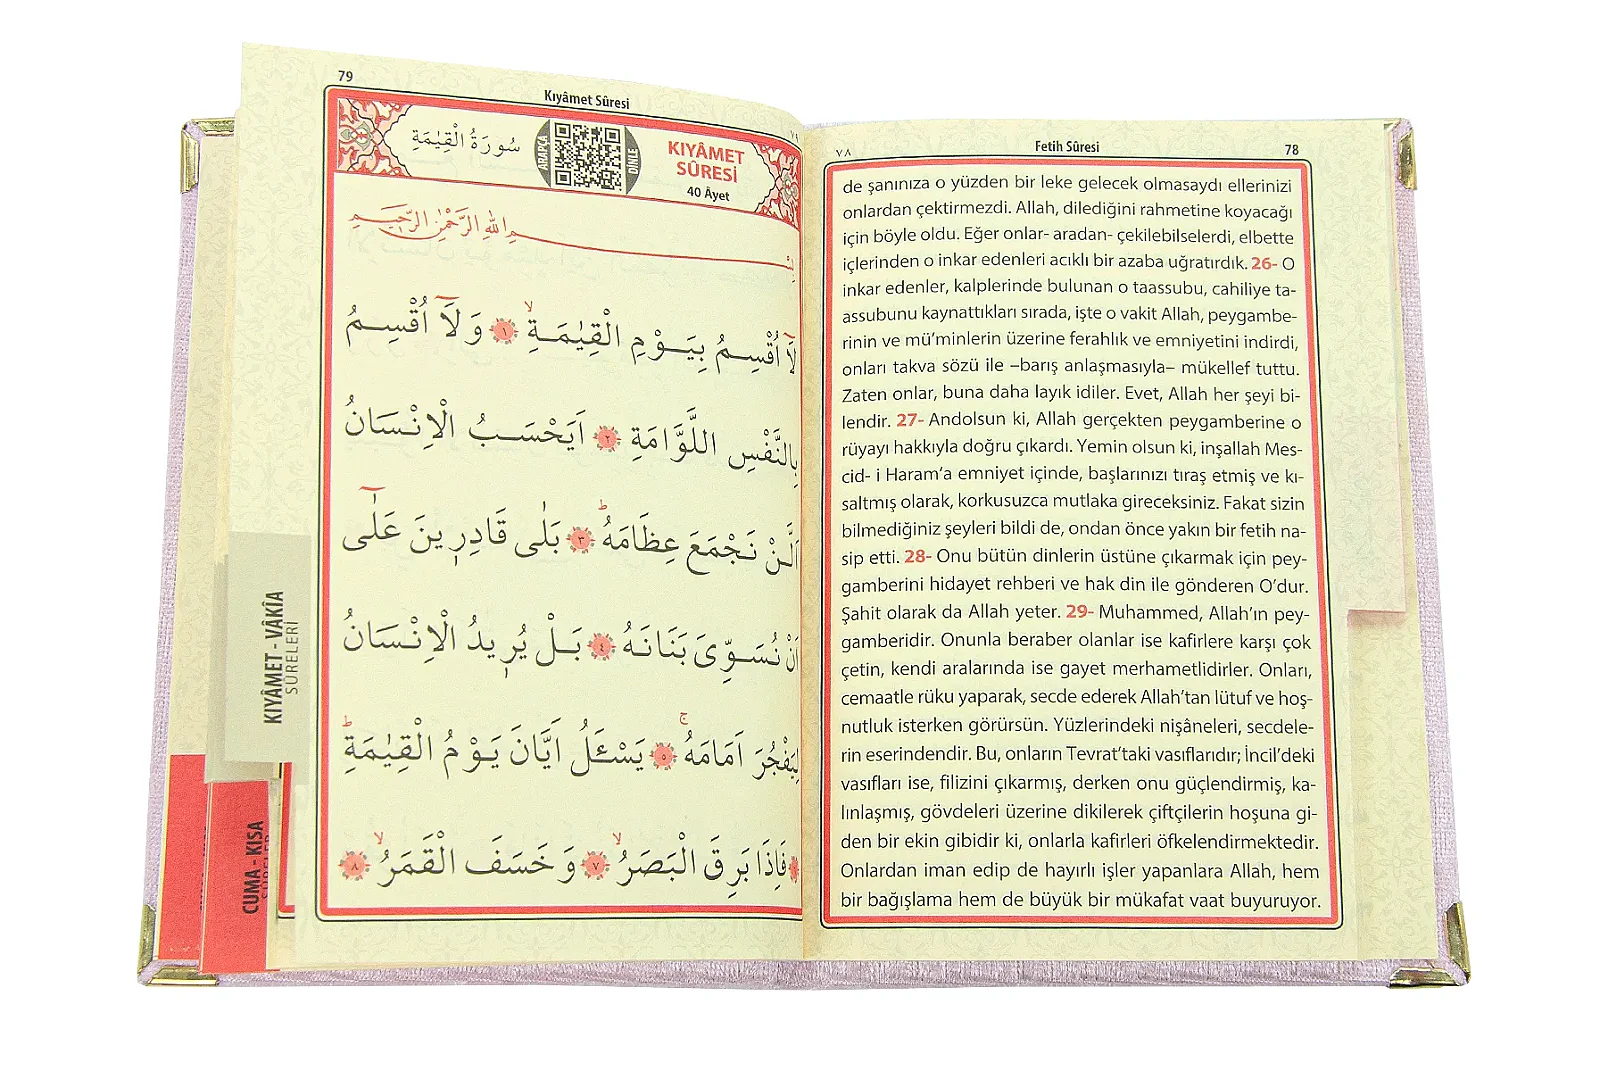 78
Fetih Sûresi
٧٨
de şanınıza o yüzden bir leke gelecek olmasaydı ellerinizi
onlardan çektirmezdi. Allah, dilediğini rahmetine koyacağı
için böyle oldu. Eğer onlar- aradan- çekilebilselerdi, elbette
içlerinden o inkar edenleri acıklı bir azaba uğratırdık. 26- O
inkar edenler, kalplerinde bulunan o taassubu, cahiliye ta-
assubunu kaynattıkları sırada, işte o vakit Allah, peygambe-
rinin ve mü’minlerin üzerine ferahlık ve emniyetini indirdi,
onları takva sözü ile –barış anlaşmasıyla– mükellef tuttu.
Zaten onlar, buna daha layık idiler. Evet, Allah her şeyi bi-
lendir. 27- Andolsun ki, Allah gerçekten peygamberine o
rüyayı hakkıyla doğru çıkardı. Yemin olsun ki, inşallah Mes-
cid- i Haram’a emniyet içinde, başlarınızı tıraş etmiş ve kı-
saltmış olarak, korkusuzca mutlaka gireceksiniz. Fakat sizin
bilmediğiniz şeyleri bildi de, ondan önce yakın bir fetih na-
sip etti. 28- Onu bütün dinlerin üstüne çıkarmak için pey-
gamberini hidayet rehberi ve hak din ile gönderen O’dur.
Şahit olarak da Allah yeter. 29- Muhammed, Allah’ın pey-
gamberidir. Onunla beraber olanlar ise kafirlere karşı çok
çetin, kendi aralarında ise gayet merhametlidirler. Onları,
cemaatle rüku yaparak, secde ederek Allah’tan lütuf ve hoş-
nutluk isterken görürsün. Yüzlerindeki nişâneleri, secdele-
rin eserindendir. Bu, onların Tevrat’taki vasıflarıdır; İncil’deki
vasıfları ise, filizini çıkarmış, derken onu güçlendirmiş, ka-
lınlaşmış, gövdeleri üzerine dikilerek çiftçilerin hoşuna gi-
den bir ekin gibidir ki, onlarla kafirleri öfkelendirmektedir.
Onlardan iman edip de hayırlı işler yapanlara Allah, hem
bir bağışlama hem de büyük bir mükafat vaat buyuruyor.
79
Kıyâmet Sûresi
٧٩
سُورَةُ الْقِيٰمَةِ
ARAPÇA
DİNLE
KIYÂMET
SÛRESİ
40 Âyet
بِسْمِ اللهِ الرَّحْمٰنِ الرَّحِيمِ
لَٓا اُقْسِمُ بِيَوْمِ الْقِيٰمَةِۙ ﴿١﴾ وَلَٓا اُقْسِمُ
بِالنَّفْسِ اللَّوَّامَةِ ﴿٢﴾ اَيَحْسَبُ الْاِنْسَانُ
اَلَّنْ نَجْمَعَ عِظَامَهُۜ ﴿٣﴾ بَلٰى قَادِر۪ينَ عَلٰٓى
اَنْ نُسَوِّيَ بَنَانَهُ ﴿٤﴾ بَلْ يُر۪يدُ الْاِنْسَانُ
لِيَفْجُرَ اَمَامَهُۚ ﴿٥﴾ يَسْـَٔلُ اَيَّانَ يَوْمُ الْقِيٰمَةِۜ
فَاِذَا بَرِقَ الْبَصَرُۙ ﴿٧﴾ وَخَسَفَ الْقَمَرُۙ ﴿٨﴾
KIYÂMET - VÂKIA
SÛRELERİ
CUMA - KISA